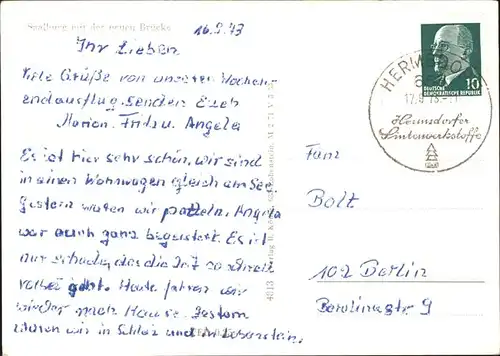 Saalburg mit der neuen Brücke
16.9.73
Ihr Lieben
Viele Grüße von unseren Wochen-
endausflug senden Euch
Marion, Fritz u. Angela
Es ist hier sehr schön, wir sind
in einen Wohnwagen gleich am See.
Gestern waren wir paddeln. Angela
war auch ganz begeistert. Es ist
nur schade, das die Zeit so schnell
vorbei geht. Heute fahren wir
wieder nach Hause. Gestern
waren wir in Schleiz und in Lobenstein.
HERMSDORF
653
10
DEUTSCHE
DEMOKRATISCHE REPUBLIK
Hermsdorfer
Sinterwerkstoffe
Fam.
Bolt
102 Berlin
Berolinastr 9